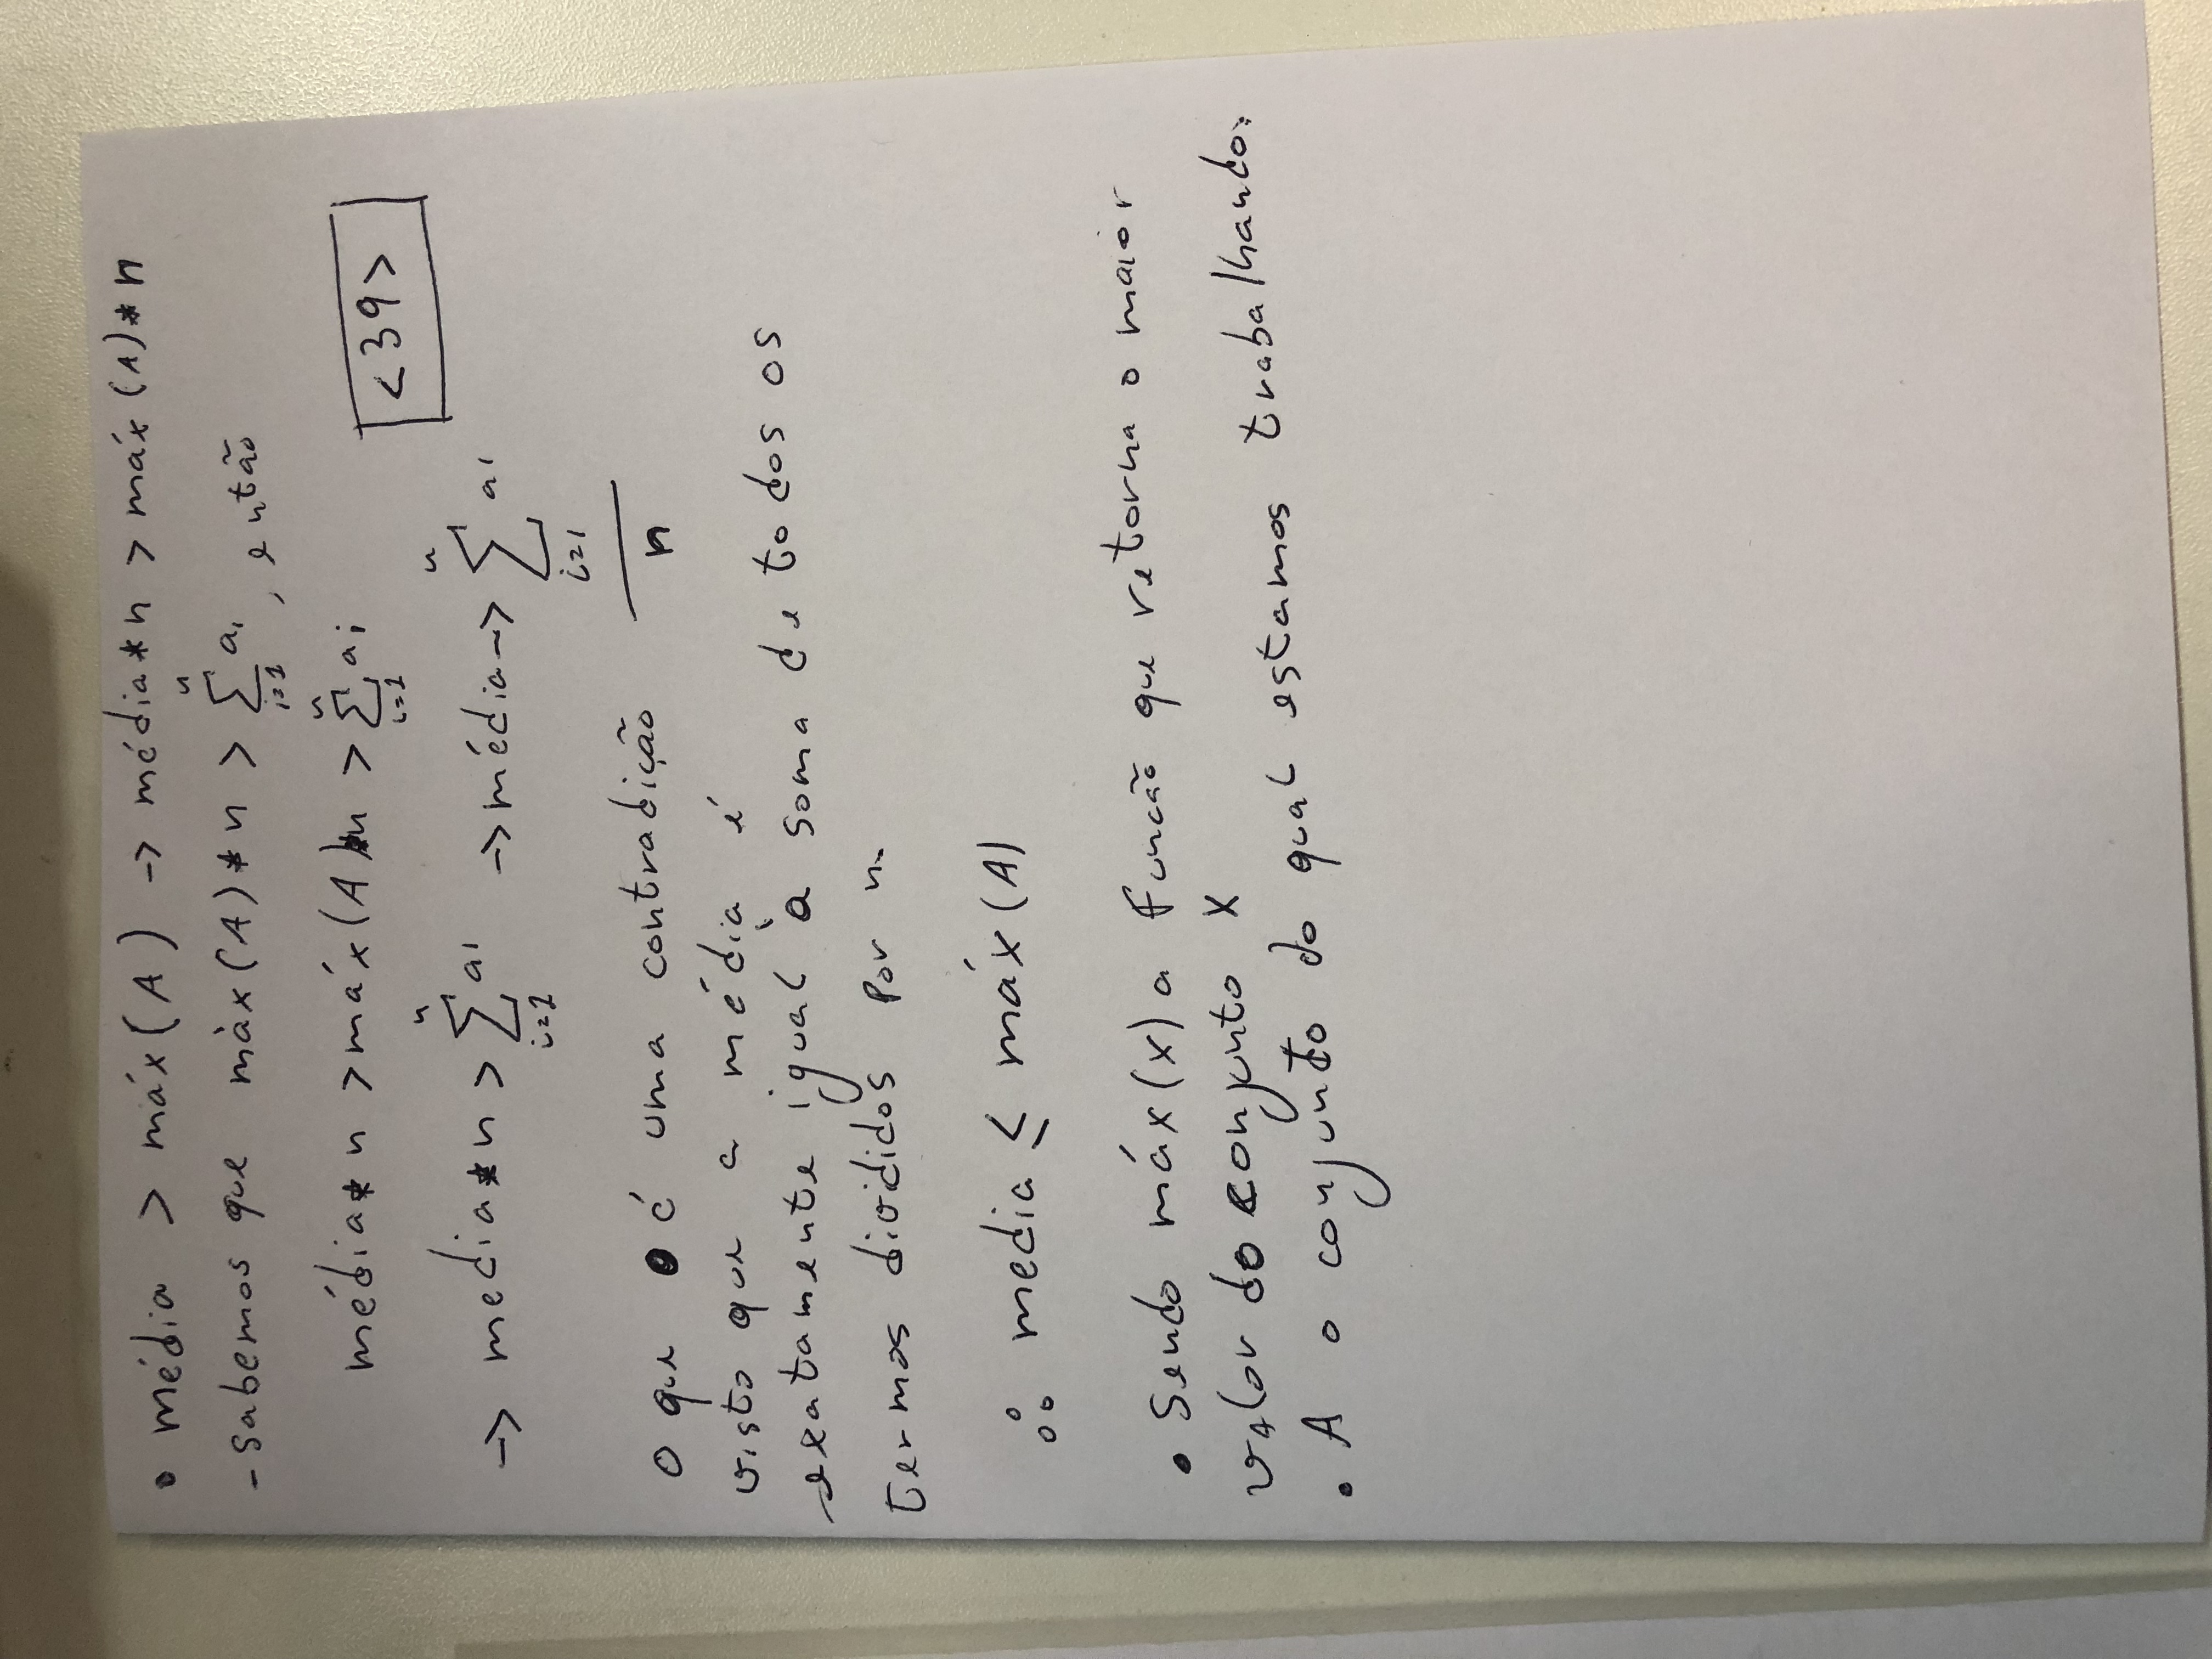 • média > máx(A) → média*n > máx(A)*n
- sabemos que màx(A)*n > ∑ᵢ₌₁ⁿ aᵢ, então
média*n > máx(A)*n > ∑ᵢ₌₁ⁿ aᵢ
<39>
→ media*n > ∑ᵢ₌₁ⁿ aᵢ → média → ∑ᵢ₌₁ⁿ aᵢ / n
O que é uma contradição
visto que a média é
exatamente igual à soma de todos os
termos divididos por n.
∴ media ≤ máx(A)
• Sendo máx(x) a Funcão que retorna o maior
valor do conjunto X
• A o conjunto do qual estamos trabalhando.